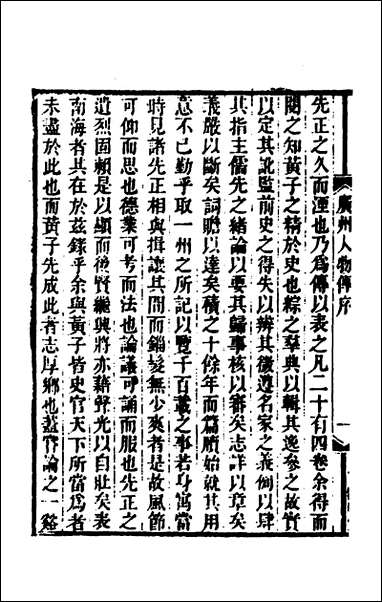 先正之久而湮也乃爲傳以表之凡二十有四卷余得而
閱之知黃子之精於史也綜之羣典以輯其逸參之故實
以定其訛監前史之得失以辨其徵遵名家之義例以肆
其指主儒先之緒論以要其歸事核以審矣志詳以章矣
義嚴以斷矣詞贍以達矣積之十餘年而篇牘始就其用
意不已勤乎取一州之所記以覽千百載之事若身寓當
時見諸先正相與揖讓其間而鬚髮無少爽者是故風節
可仰而思也德業可考而法也論議可誦而服也先正之
遺烈固賴是以顯而後賢繼興將亦藉聲光以自壯矣表
南海者其在於茲錄乎余與黃子皆史官天下所當爲者
未盡於此也而黃子先成此者志厚鄉也蓋嘗論之一谿
廣州人物傳序
一